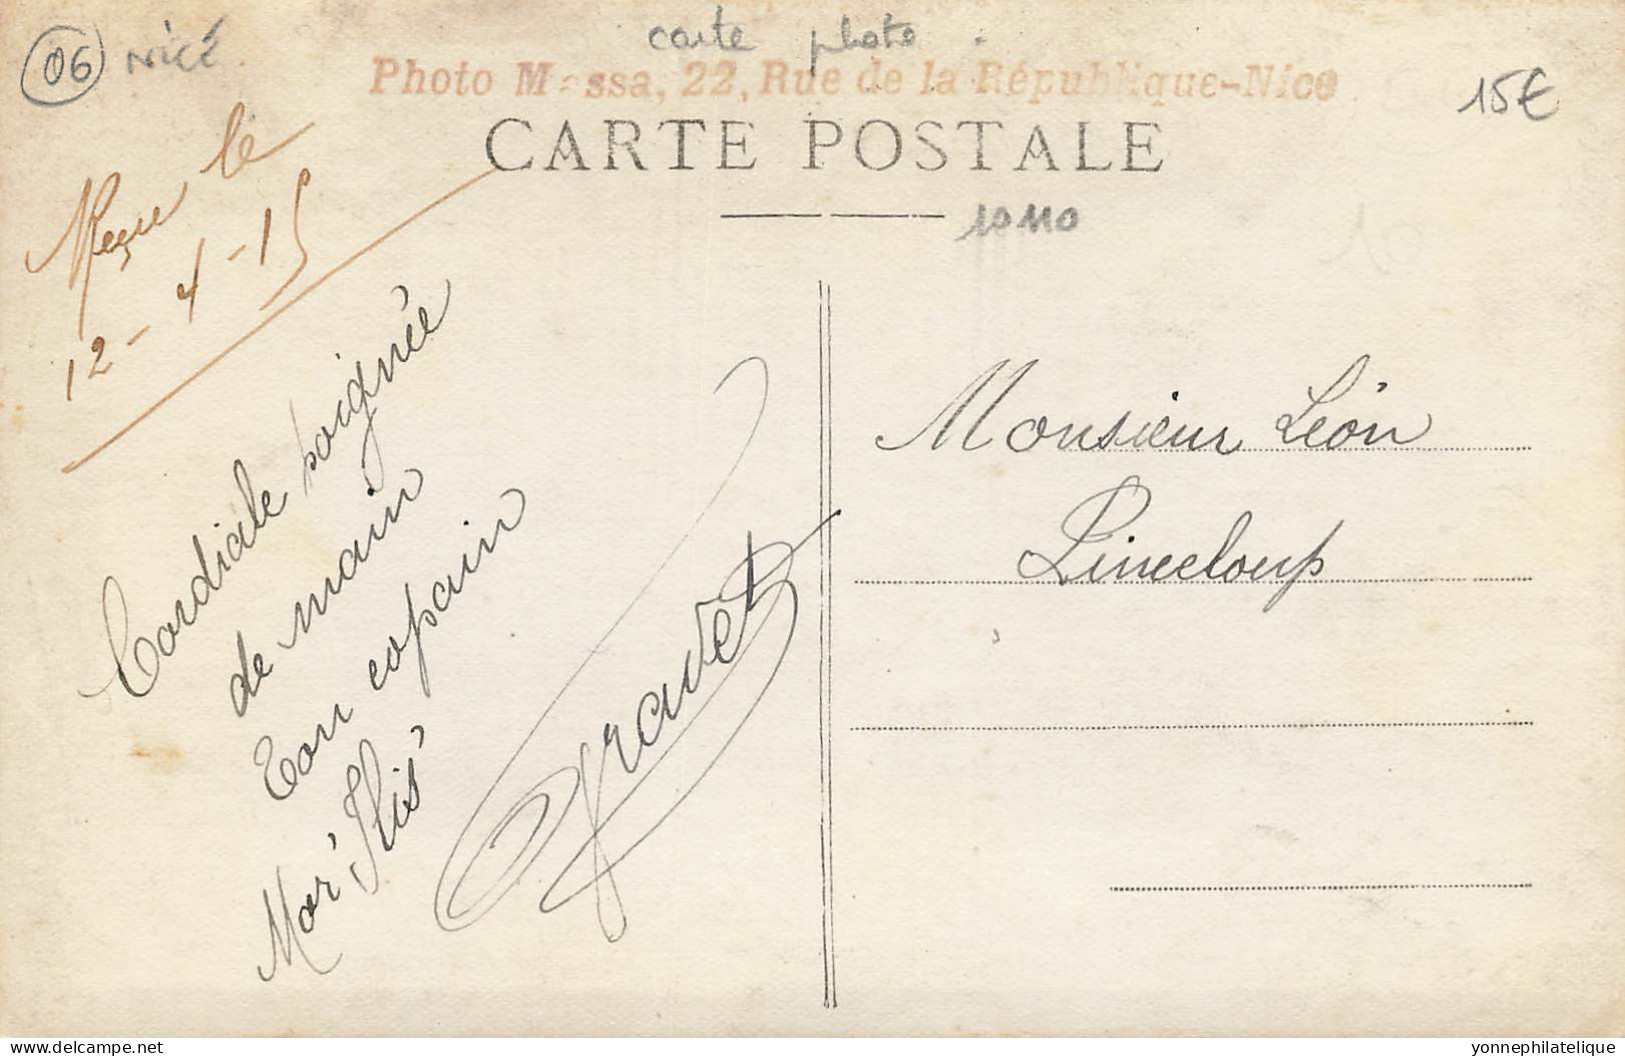 06 NICE
carte photo.
Photo Massa, 22, Rue de la République-Nice
15€
CARTE POSTALE
10110
Reçu le
12-4-15
Cordiale poignée
de main
Ton copain
Gravet
Monsieur Léon
delcampe.net
yonnephilatelique